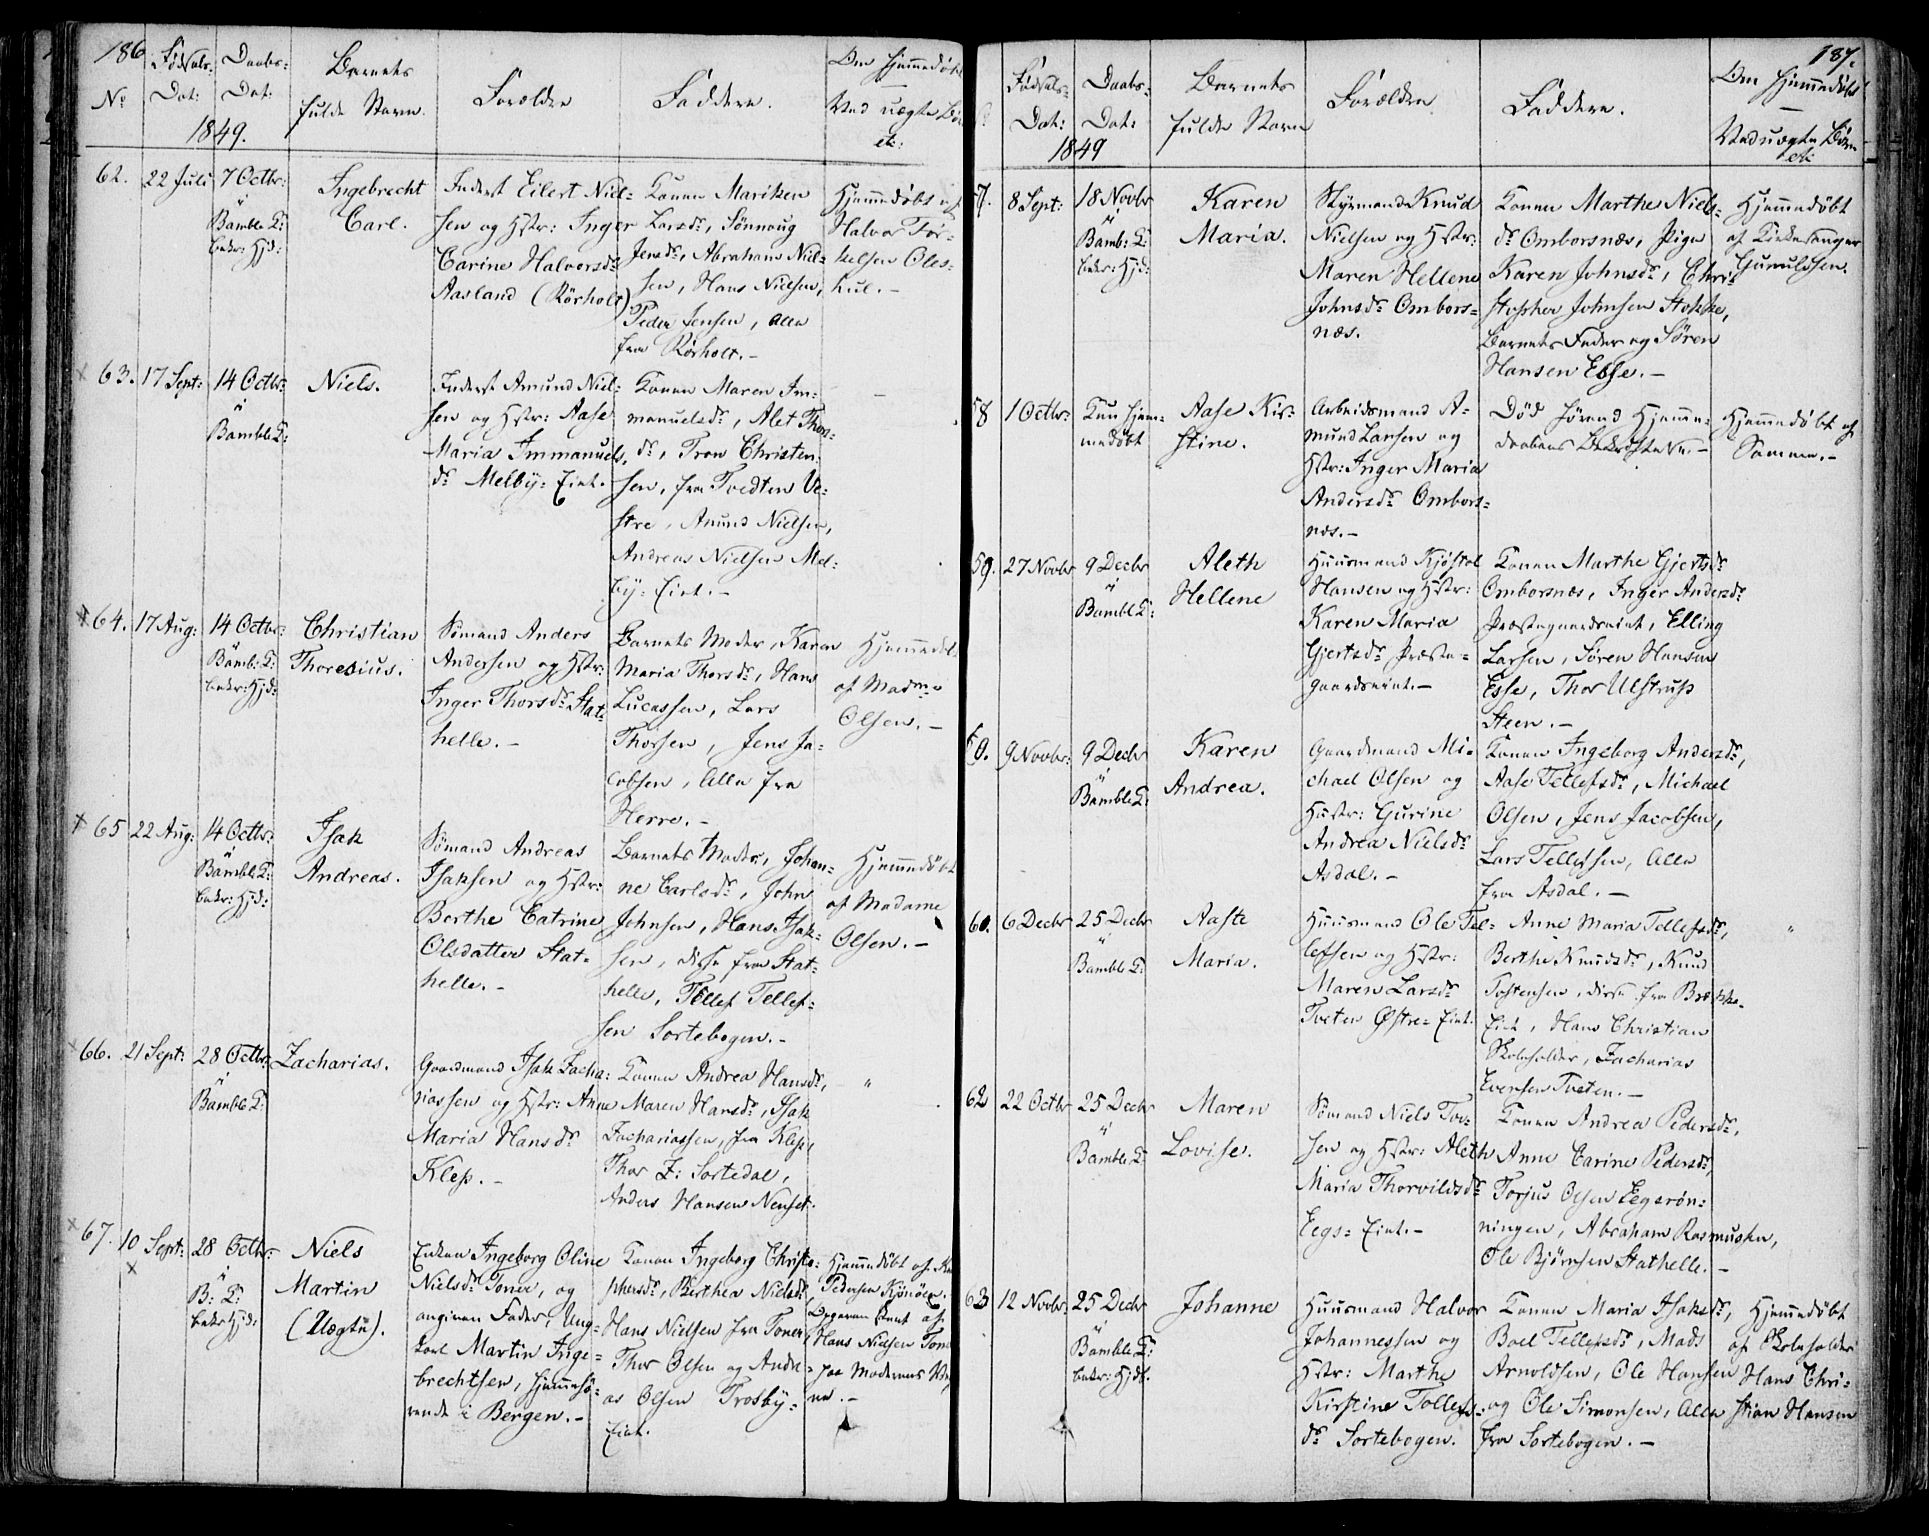 186
Fødsels-
Dat:
Daabs-
Dat:
Barnets
fulde Navn.
Forældre
Faddere.
Om hjemmedøbt
—
Ved uægte Bø
etc:
No
1849.
62.
22 Juli
7 Octbr:
i
Bamble K:
bekr: Hjd:
Ingebrecht
Carl.
Inderst Eilert Niel-
sen og Hstr: Inger
Carine Halvorsdr
Aasland (Rørholt)
Konen Mariken
Larsdr, Sønnoug
Jensdr, Abraham Niel-
sen, Hans Nielsen,
Peder Jensen, alle
fra Rørholt. –
Hjemmedøbt af
Halvor Tor-
kelsen Oles-
hul. –
63.
17 Sept:
14 Octbr:
i
Bamble K:
Niels.
Inderst Amund Niel-
sen og Hstr: Aase
Maria Immanuels-
dr Melby-Eiet.
Konen Maren Im-
manuelsdr, Alet Thor-
dr, Tron Christen-
sen, fra Tvedten Ve-
stre, Amund Nielsen,
Andreas Nielsen Mel-
by-Eiet. –
64.
17 Aug:
14 Octbr:
i
Bamb: K:
bekr: Hjd:
Christian
Thoresius.
Sømand Anders
Andersen og Hstr:
Inger Thorsdr Stat-
helle. –
Barnets Moder, Karen
Maria Thorsdr, Hans
Lucassen, Lars
Thorsen, Jens Ja-
cobsen, Alle fra
Herre. –
Hjemmedbt
af Madme
Olsen. –
65
22 Aug:
14 Octbr:
i
Bamble K:
bekr: Hjd:
Isak
Andreas.
Sømand Andreas
Isaksen og Hstr:
Berthe Catrine
Olsdatter Stat-
helle. –
Barnets Moder, Johan-
ne Carlsdr, John
Johnsen, Hans Isak-
sen, disse fra Stat-
helle, Tellef Tellef-
sen Sortebogen. –
Hjemmedøbt
af Madame
Olsen. –
66.
21 Sept:
28 Octbr:
i
Bamble K:
Zacharias.
Gaardmand Isak Zacha-
riassen og Hstr: Anne
Maria Hansdr
Klep. –
Konen Andrea Hansdr,
Maren Hansdr, Isak
Zachariassen, fra Klep,
Thor Z: Sortedal,
Anders Hansen Nenset.
"
67.
10 Sept:
28 Octbr:
i
B: K:
bekr Hjd:
Niels
Martin
(Uægte).
Enken Ingeborg Oline
Nielsdr Toner, og
angiven Fader, Ung-
karl Martin Inge-
brechtsen, hjemmehø-
rende i Bergen. –
Konen Ingeborg Christo-
phersdr, Berthea Nielsdr,
Hans Nielsen fra Toner
Thor Olsen og Andre-
as Olsen Trosby-
Eiet.
Hjemmedøbt af
Pedersen
Opgaven
Hans Nielsen Toner
paa Moderens Veg-
ne. –
187.
Fødsels-
Dat:
Daabs-
Dat:
Barnets
fulde Navn
Forældre
Faddere.
Om hjemmedøbt
—
Ved uægte Børn
etc:
1849
57.
8 Sept:
18 Novbr
i
Bamb: K:
bekr: Hjd:
Karen
Maria.
Styrmand Knud
Nielsen og Hstr:
Maren Hellene
Johnsdr Ombors-
næs.
Konen Marthe Niels-
dr Omborsnæs, Pige
Karen Johnsdr, Chri-
stopher Johnsen Stokke,
Barnets Fader og Søren
Hansen Esse. –
Hjemmedøbt
af Kirkesanger
Gunulssen.
58
1 Octbr:
Kun hjem-
medøbt
Aase Kir-
stine.
Arbeidsmand A-
mund Larsen og
Hstr: Inger Maria
Andersdr Ombors-
næs. –
Død førend Hjemme-
daabens Bekræftelse. –
Hjemmedøbt af
Samme. –
59.
27 Novbr
9 Decbr
i
Bamble K:
Aleth
Hellene
Huusmand Kjøstol
Hansen og Hstr:
Karen Maria
Gjertsdr Præste-
gaardseiet. –
Konen Marthe Gjertsdr
Omborsnæs, Inger Andersdr
Præstegaardseiet, Elling
Larsen, Søren Hansen
Esse, Thor Ulstrup
Steen. –
60.
9 Novbr:
9 Decbr
i
Bamble K:
Karen
Andrea.
Gaardmand Mi-
chael Olsen og
Hustr: Gurine
Andrea Nielsdr
Asdal. –
Konen Ingeborg Andersdr,
Aase Tellefsdr, Michael
Olsen, Jens Jacobsen,
Lars Tellefsen, Alle
fra Asdal. –
61.
6 Decbr
25 Decbr
i
Bamble K:
Aaste
Maria.
Huusmand Ole Tel-
lefsen og Hstr:
Maren Larsdr
Tveten Østre-Eiet.
Anne Maria Tellefsdr,
Berthe Knudsdr, Knud
Tostensen, disse fra Brække-
Eiet, Hans Christian
Skoleholder, Zacharias
Evensen Tveten. –
"
62
22 Octbr
25 Decbr
i
Bamble K:
Maren
Lovise.
Sømand Niels Tor-
sen og Hstr: Aleth
Maria Thorvildsdr
Eegs-Eiet. –
Konen Andrea Pedersdr,
Anne Carine Pedersdr,
Torjus Olsen Eegsrøn-
ningen, Abraham Rasmussen,
Ole Bjørnsen Stathelle. –
63
12 Novbr.
25 Decbr
i
Bamble K:
bekr: Hjd:
Johanne
Huusmand Halvor
Johannessen og
Hstr: Marthe
Kirstine Tollefs-
dr Sortebogen.
Konen Maria Isaksdr,
Boel Tellefsdr, Mads
Arnoldsen, Ole Hansen
og Ole Simonsen, Alle
fra Sortebogen. –
Hjemmedøbt
af Skoleholder
Hans Chri-
stian Hansen